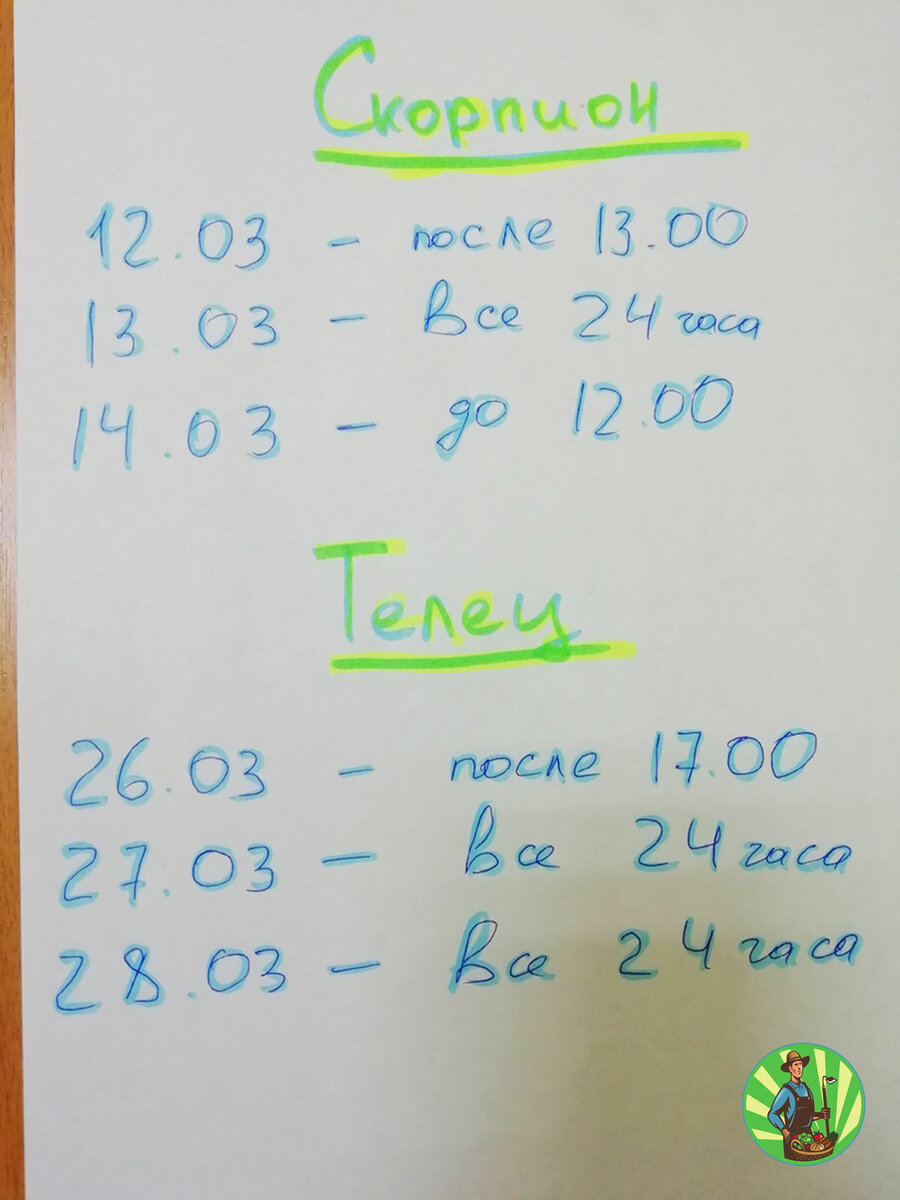 Скорпион
12.03 - после 13.00
13.03 - Все 24 часа
14.03 - до 12.00
Телец
26.03 - после 17.00
27.03 - Все 24 часа
28.03 - Все 24 часа